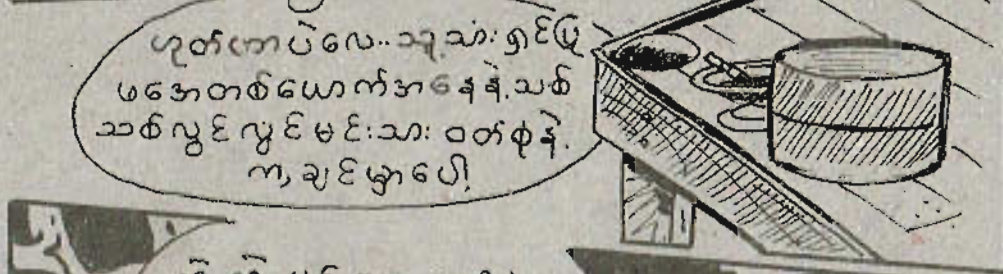 ဟုတ်တာပဲလေ..သူ့သား ရှင်ပြု
ဖအေတစ်ယောက်အနေနဲ့.သစ်
သစ်လွင်လွင်မင်းသား ဝတ်စုံနဲ့.
က,ချင်မှာပေါ့